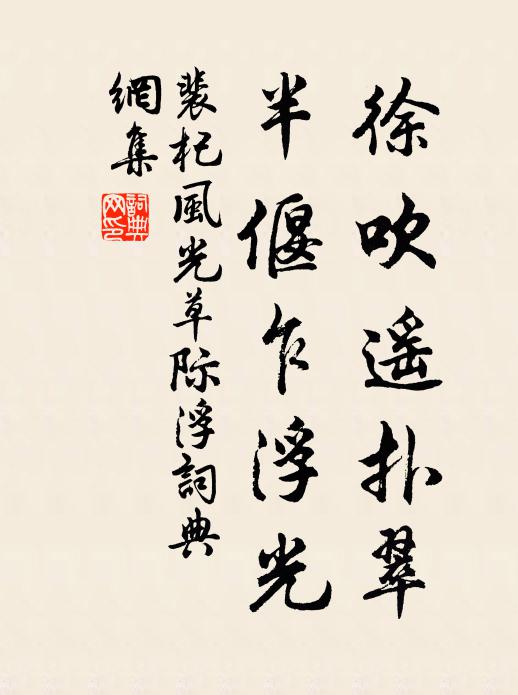 徐吹遥扑翠
半偃乍浮光
裴杞風光草际浮詞典
網集
詞典
网印